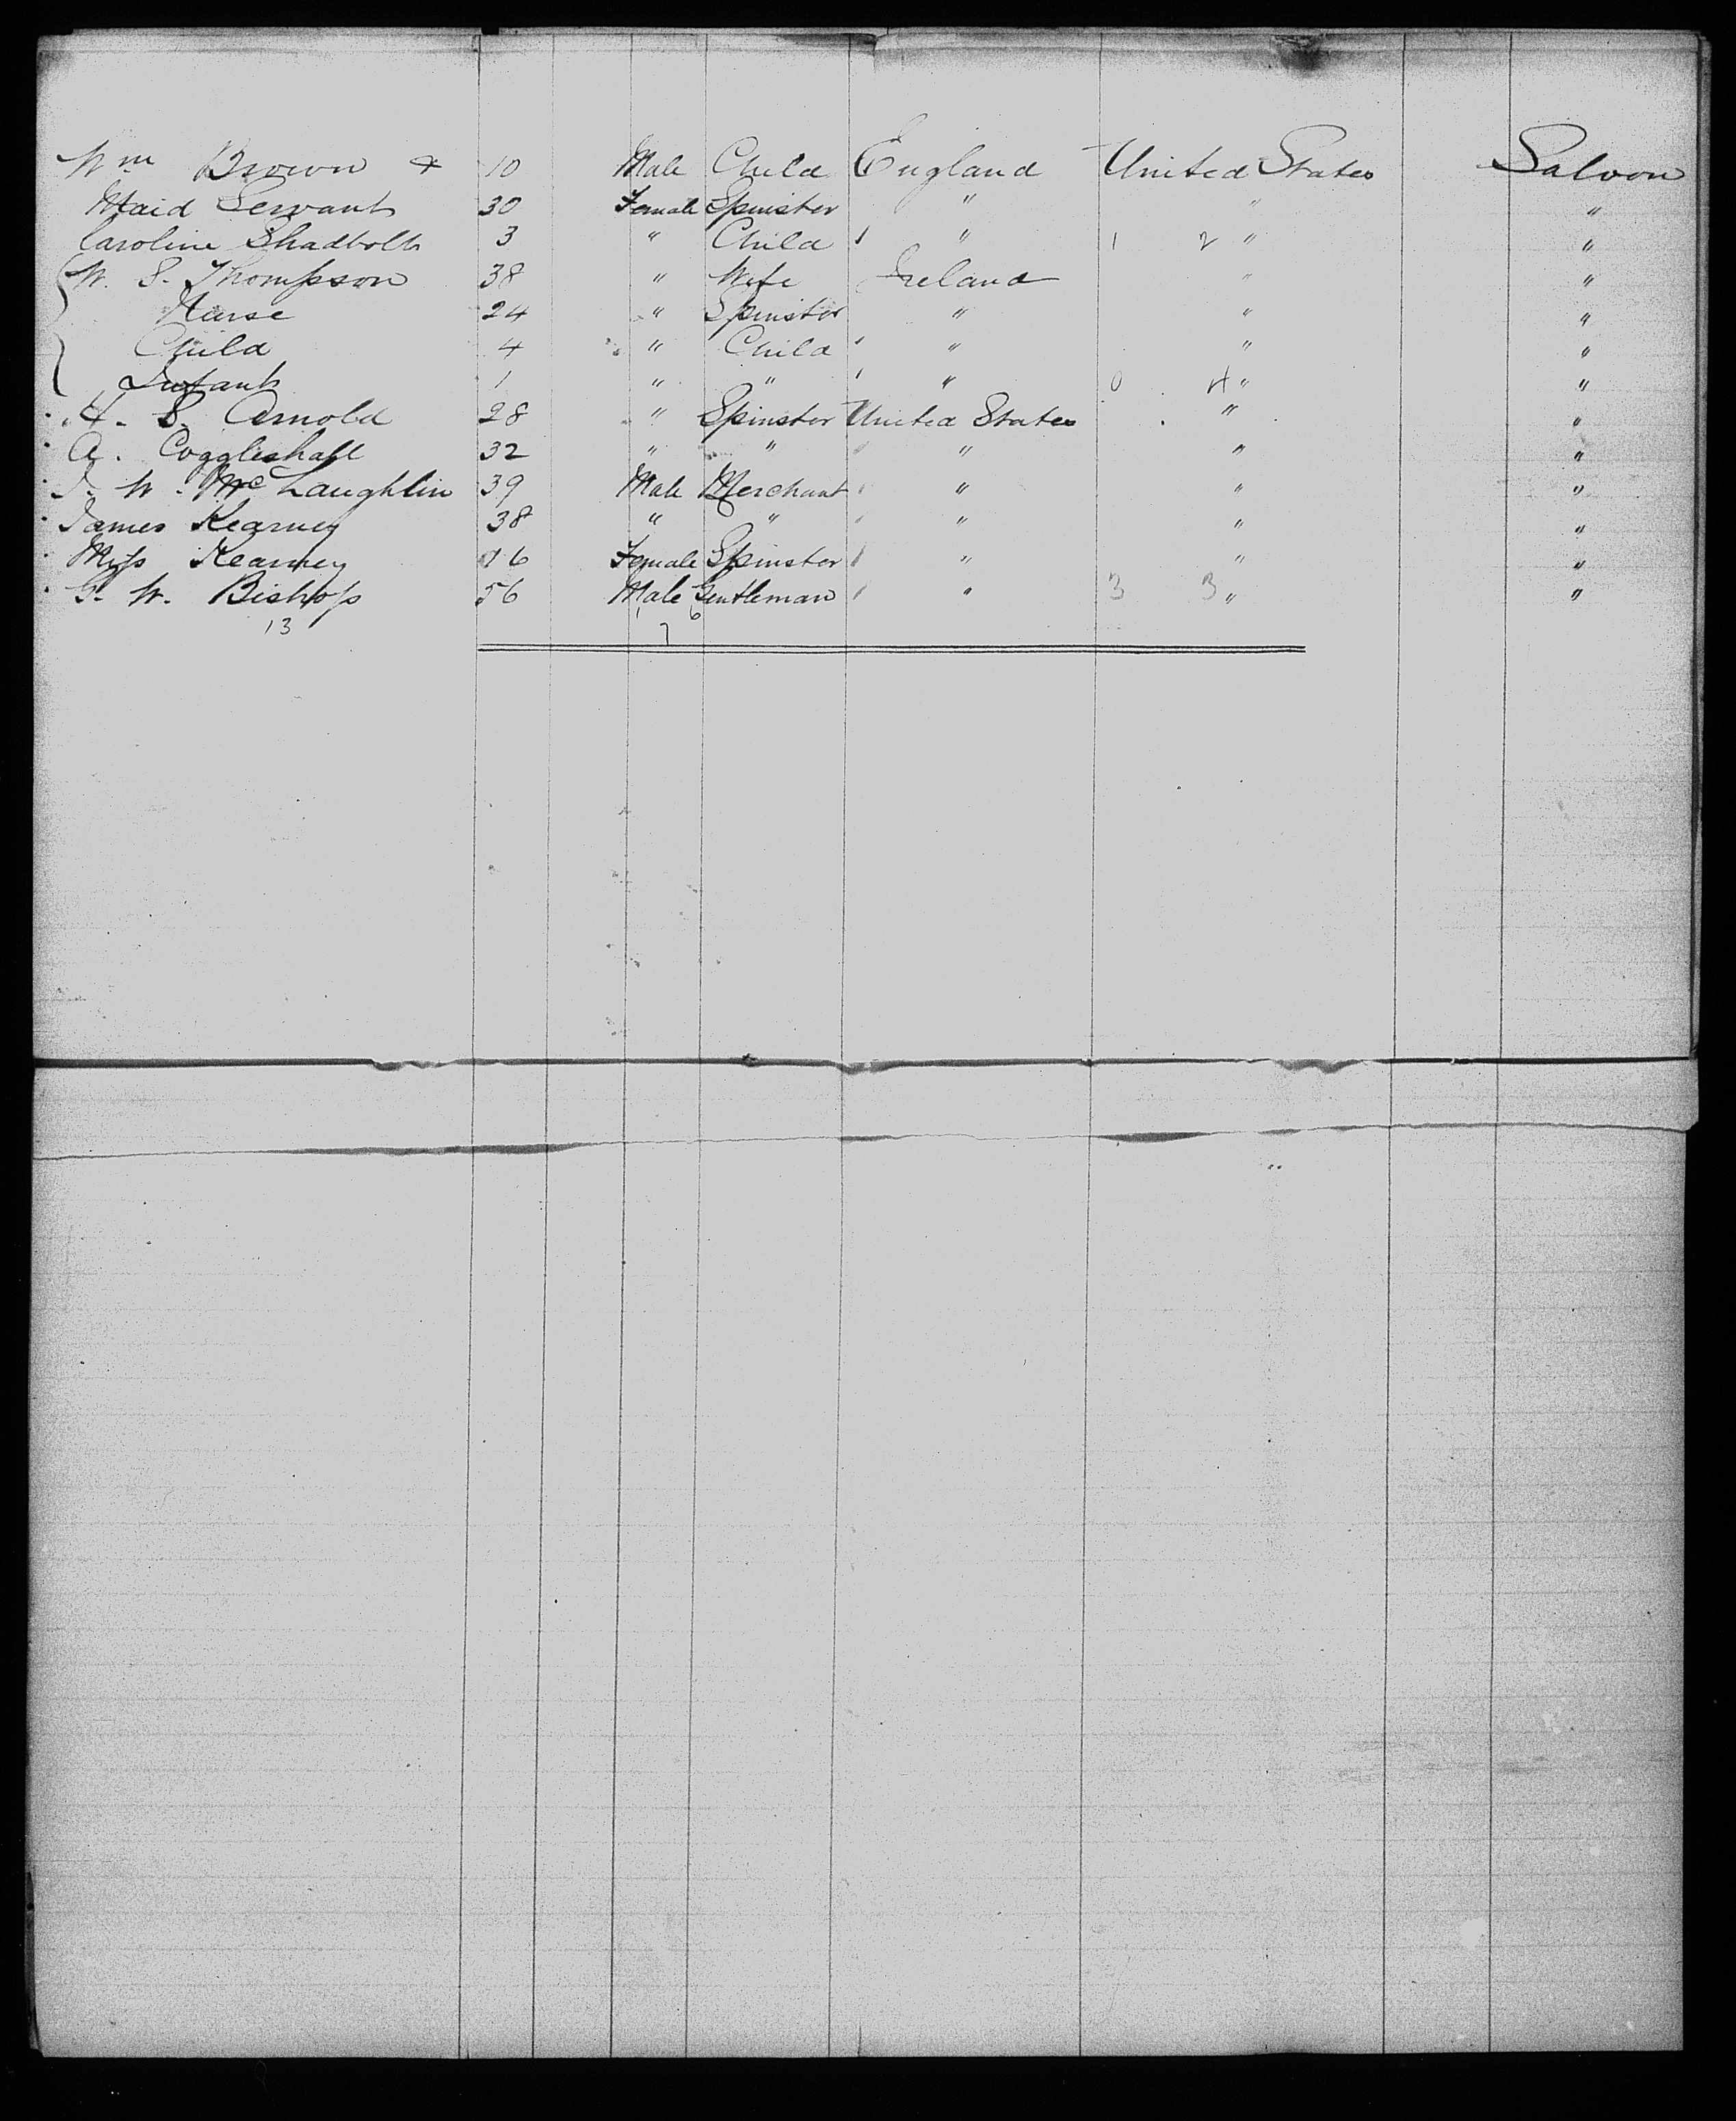 Wm Brown & 10 Male Child England United States Saloon
Maid Servant 30 Female Spinster " " "
Caroline Shadbolt 3 " Child " 1 2 " "
W. S. Thompson 38 " Wife Ireland " "
Nurse 24 " Spinster " " "
Child 4 " Child " " "
Infant 1 " " " 0 4 " "
H. S. Arnold 28 " Spinster United States " "
A. Coggleshall 32 " " " " "
J. W. McLaughlin 39 Male Merchant " " "
James Kearney 38 " " " " "
Miss Kearney 16 Female Spinster " " "
G. W. Bishop 56 Male Gentleman " 3 3 " "
13 1 7 6